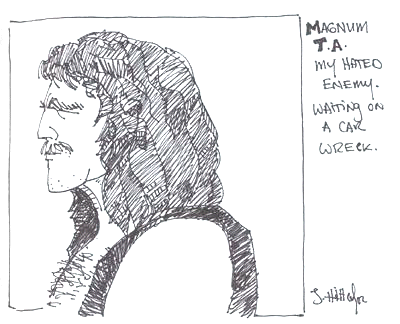 MAGNUM
T.A.
MY HATED
ENEMY.
WAITING ON
A CAR
WRECK.